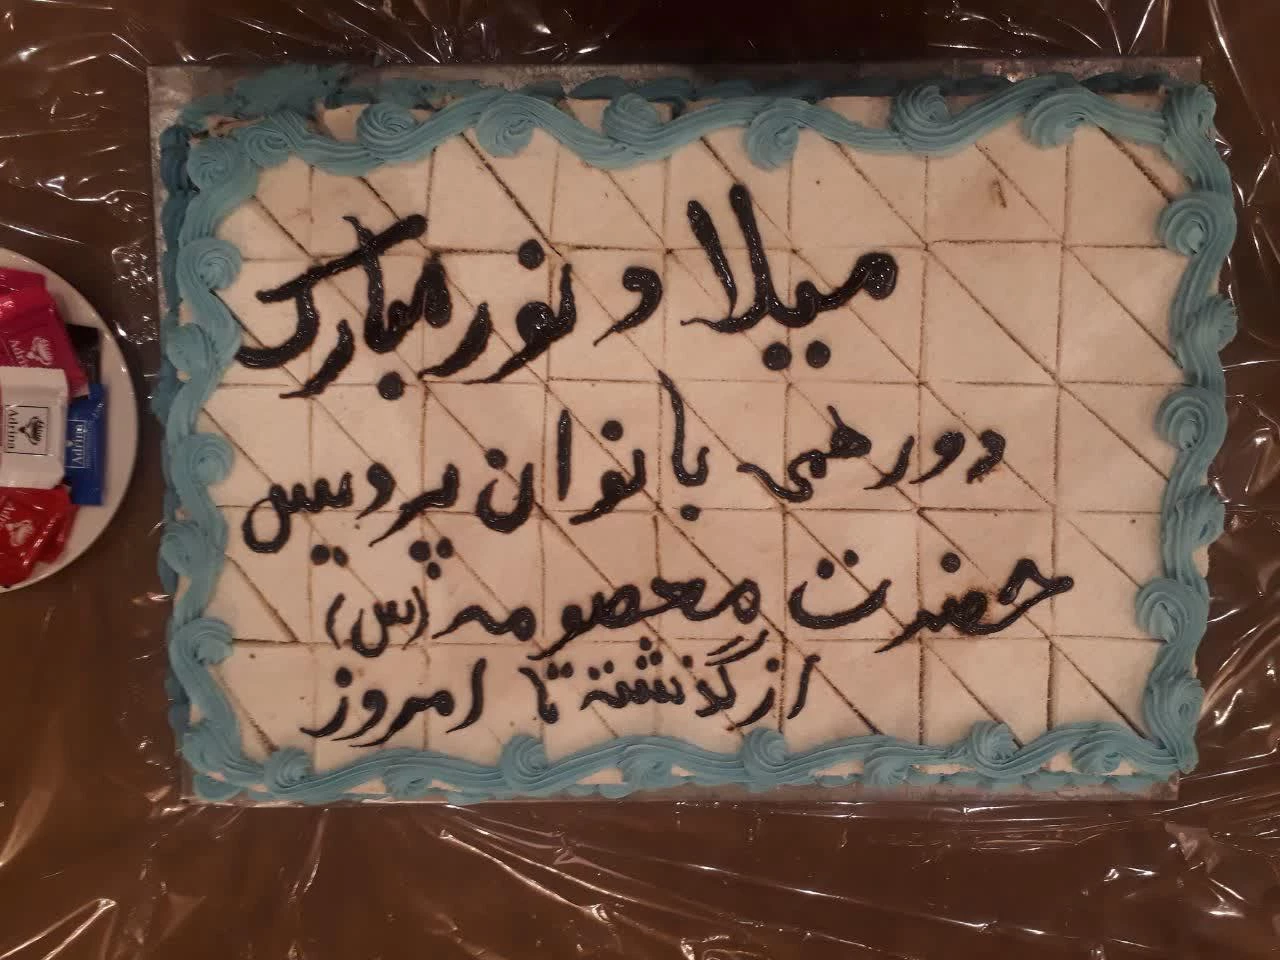 میلاد نور مبارک
دورهمی بانوان پردیس
حضرت معصومه (س)
از گذشته تا امروز
Adrina
Adrina